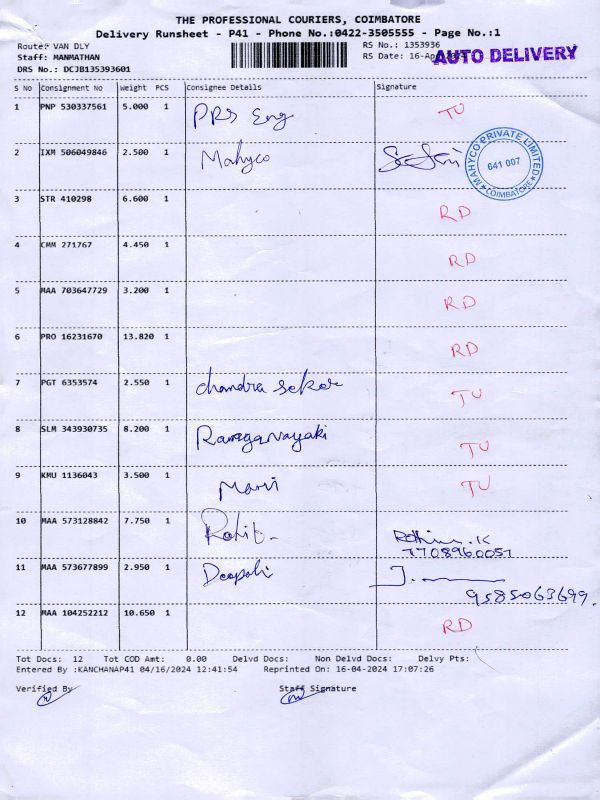 THE PROFESSIONAL COURIERS, COIMBATORE
Delivery Runsheet - P41 - Phone No.:0422-3505555 - Page No.:1
Route: VAN DLY RS No.: 1353936
Staff: MANMATHAN RS Date: 16-Apr AUTO DELIVERY
DRS No.: DCJB135393601
S No Consignment No Weight PCS Consignee Details Signature
1 PNP 530337561 5.000 1 PRS Eng TU
2 IXM 506049846 2.500 1 Mahyco MAHYCO PRIVATE LIMITED 641 007 COIMBATORE
3 STR 410298 6.600 1 RD
4 CMM 271767 4.450 1 RD
5 MAA 703647729 3.200 1 RD
6 PRO 16231670 13.820 1 RD
7 PGT 6353574 2.550 1 chandra sekar TU
8 SLM 343930735 8.200 1 Ranganayaki TU
9 KMU 1136043 3.500 1 Mani TU
10 MAA 573128842 7.750 1 Rohit-
7708960051
11 MAA 573677899 2.950 1
9585063699.
12 MAA 104252212 10.650 1 RD
Tot Docs: 12 Tot COD Amt: 0.00 Delvd Docs: Non Delvd Docs: Delvy Pts:
Entered By :KANCHANAP41 04/16/2024 12:41:54 Reprinted On: 16-04-2024 17:07:26
Verified By Staff Signature